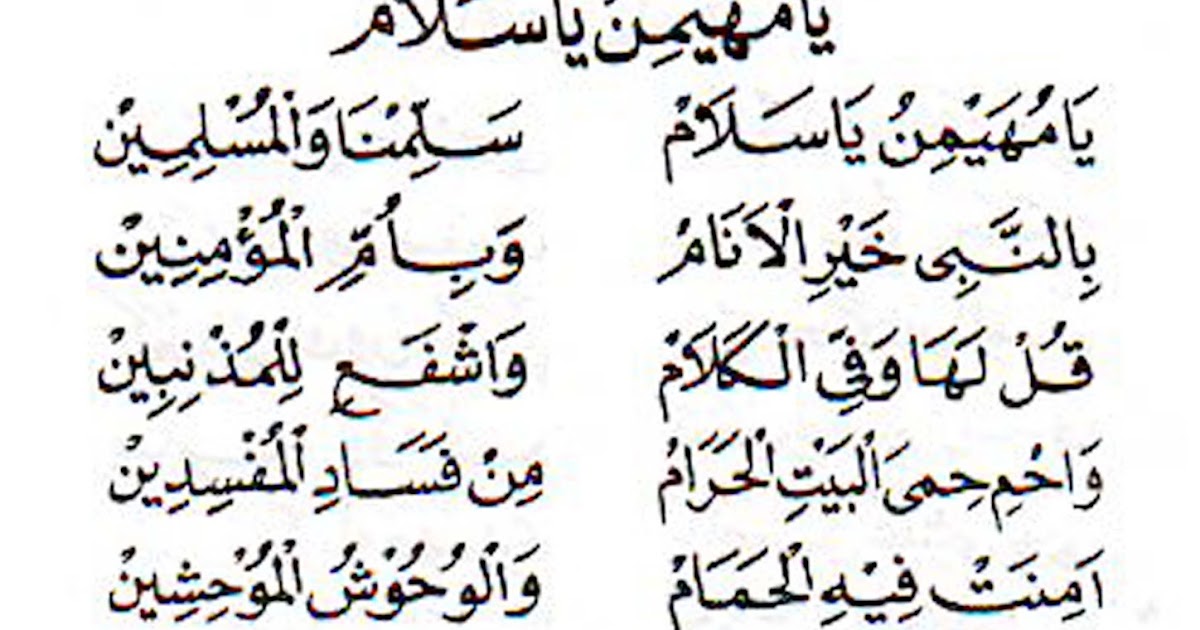 يامهيمن ياسلام
يَا مُهَيْمِنُ يَا سَلَامْ سَلِّمْنَا وَالْمُسْلِمِيْنْ
بِالنَّبِى خَيْرِ الْاَنَامْ وَبِاُمِّ الْمُؤْمِنِيْنْ
قُلْ لَهَا وَفِى الْكَلَامْ وَاشْفَعِ لِلْمُذْنِبِيْنْ
وَاحْمِ حِمَى الْبَيْتِ الْحَرَامْ مِنْ فَسَادِ الْمُفْسِدِيْنْ
اَمِنَتْ فِيْهِ الْحَمَامْ وَالْوُحُوْشُ الْمُوْحِشِيْنْ